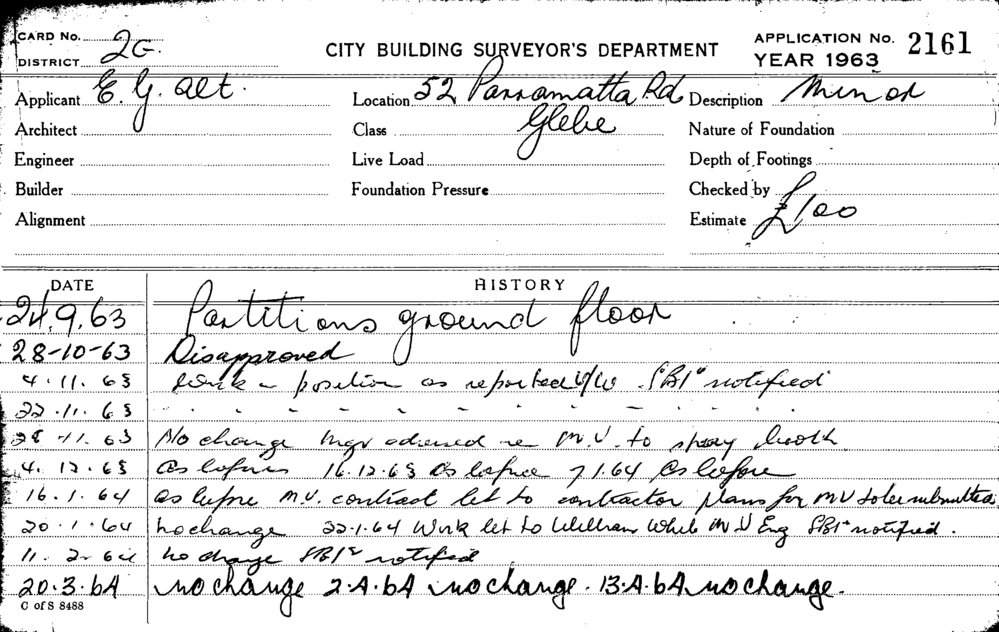 CARD No. 2G.
DISTRICT
CITY BUILDING SURVEYOR'S DEPARTMENT
APPLICATION No. 2161
YEAR 1963
Applicant E. G. Alt. Location 52 Parramatta Rd Description Minor
Architect Class Glebe Nature of Foundation
Engineer Live Load Depth of Footings
Builder Foundation Pressure Checked by
Alignment Estimate £100
DATE HISTORY
24.9.63 Partitions ground floor
28-10-63 Disapproved
4.11.63 Work in position as reported "SBI" notified
22.11.63 " " " " " " "
28.11.63 No change Mgr advised re M.V. to spray booth
4.12.63 As before 16.12.63 As before 7.1.64 As before
16.1.64 as before M.V. contract let to contractor plans for MV to be submitted
20.1.64 no change 22.1.64 Work let to William White M.V Eng SBI notified.
11.2.64 no change SBI notified
20.3.64 no change 2.4.64 no change. 13.4.64 no change.
C of S 8488